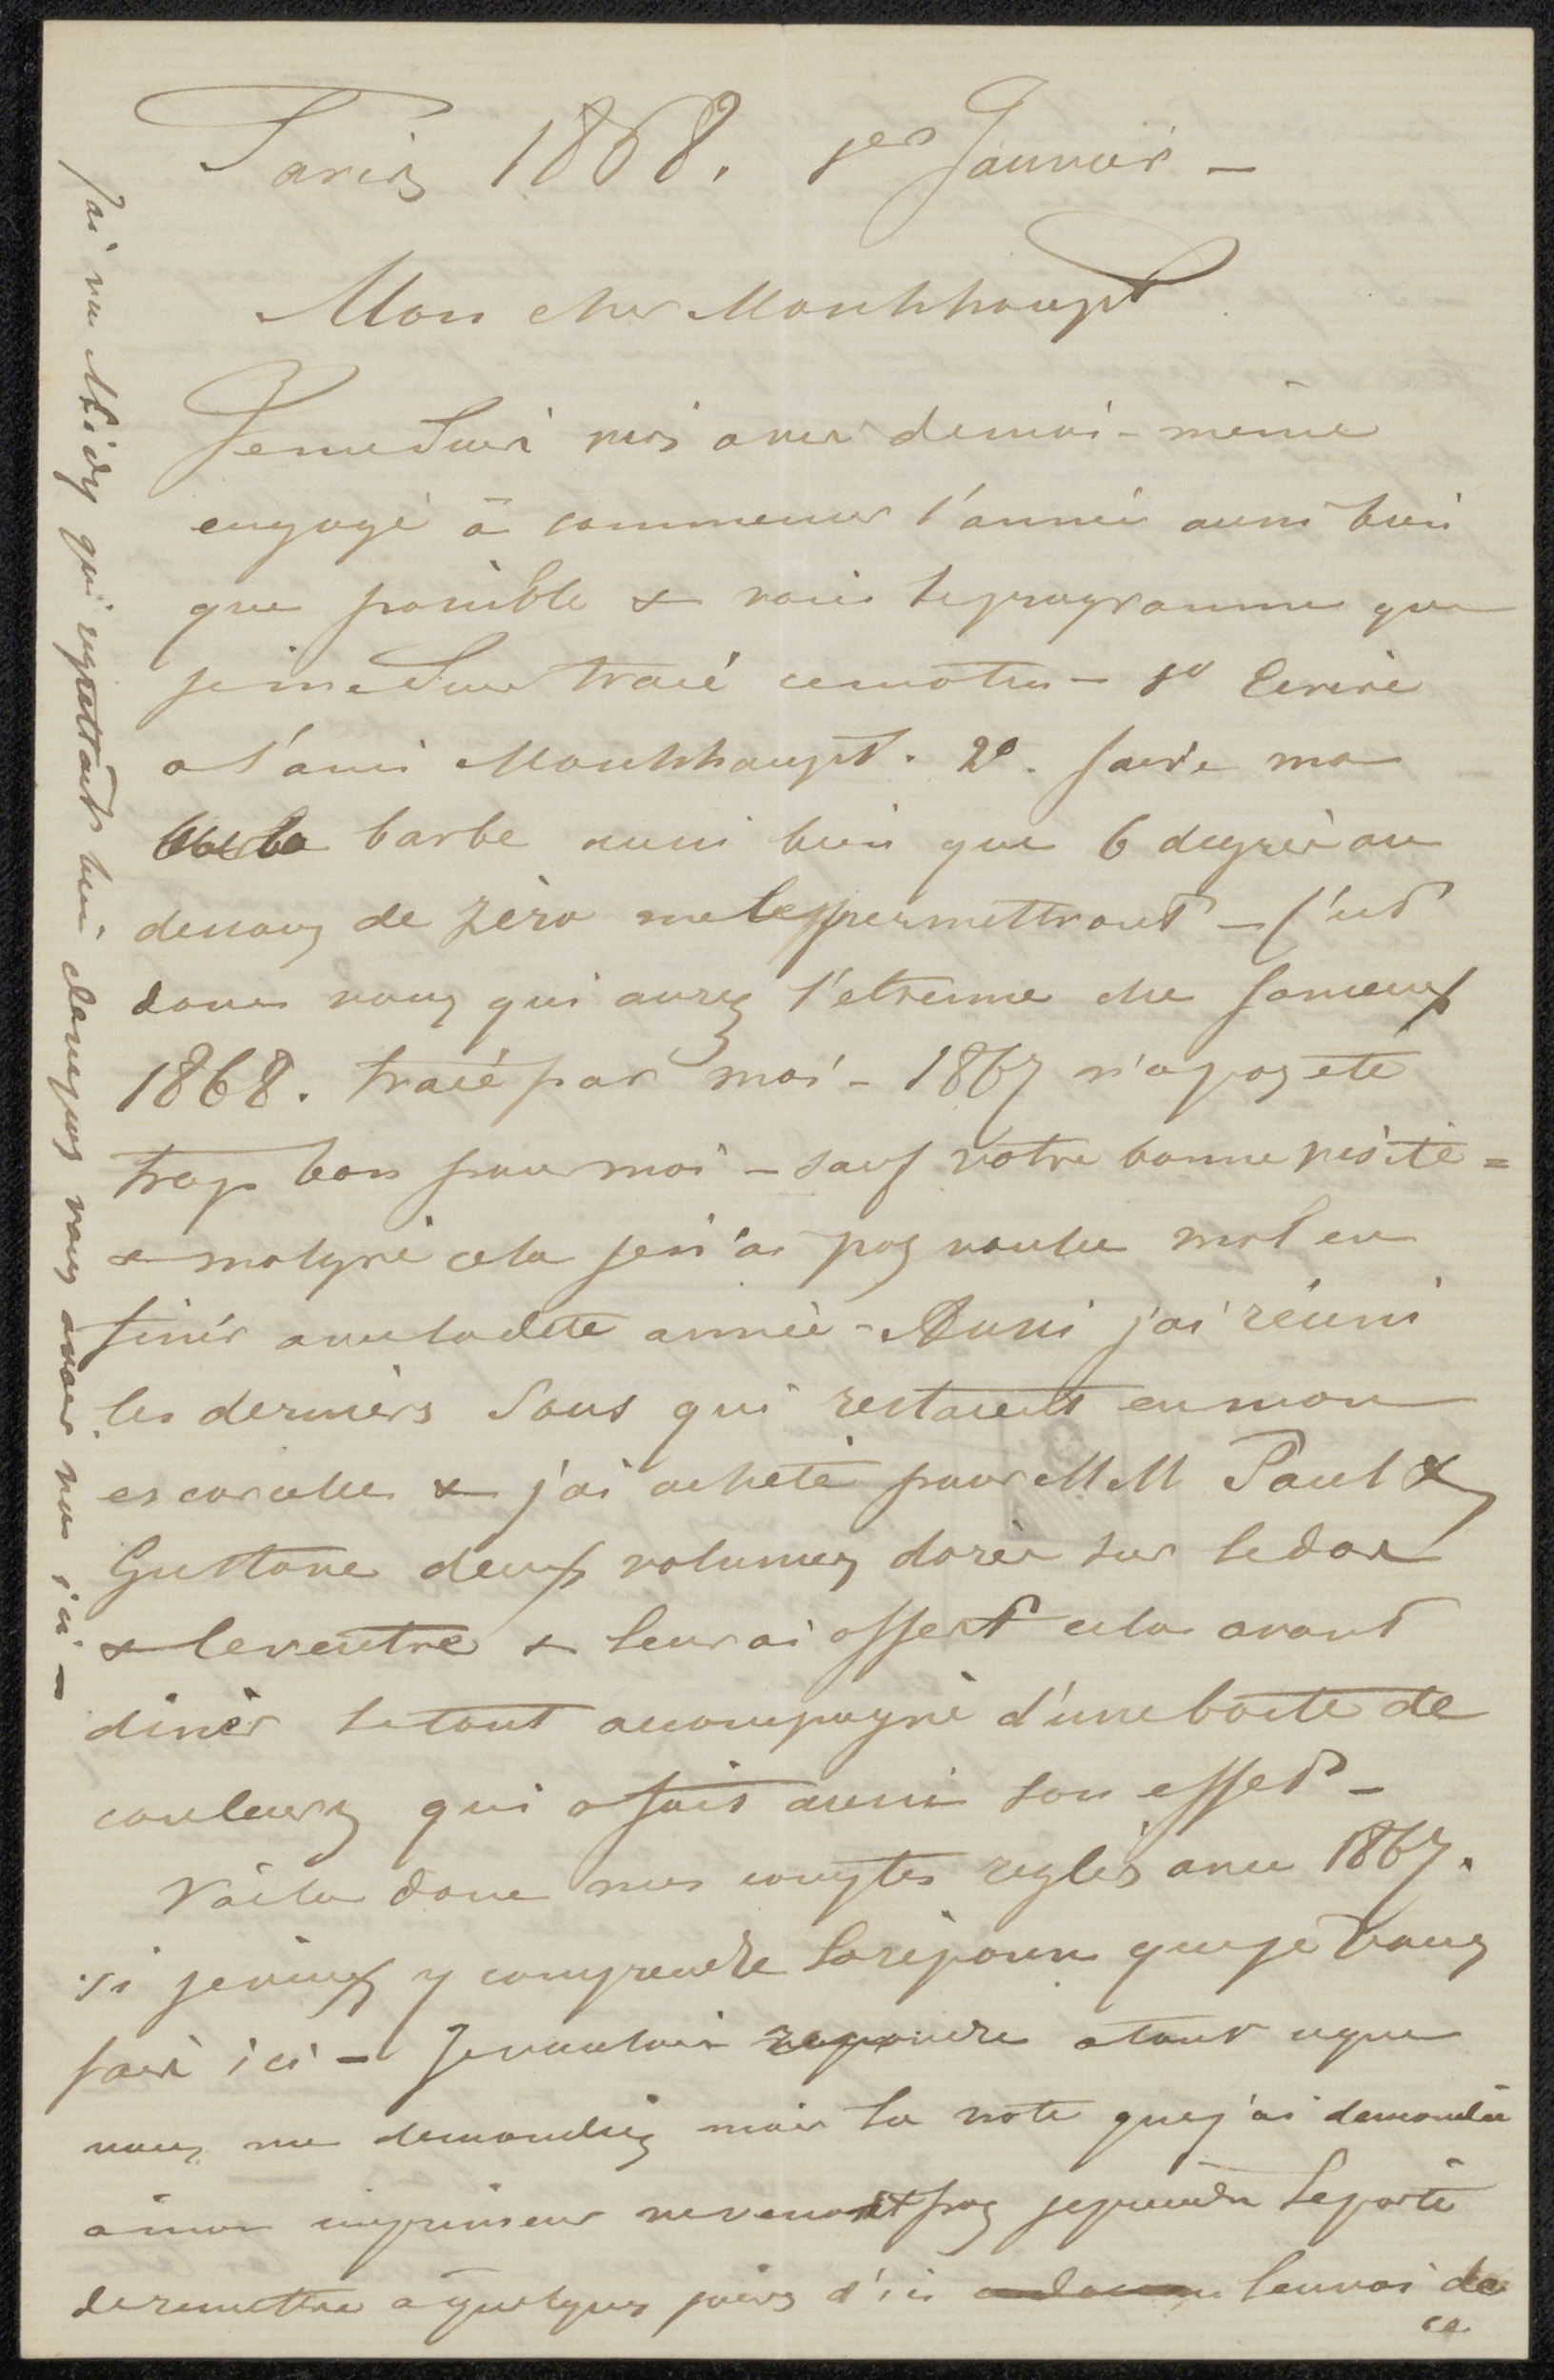 Paris 1868. 1er Janvier -
Mon cher Monhhaupt
Je me suis vis avis de moi-même
engagé à commencer l'année aussi bien
que possible & voici le programme que
je me suis tracé ce matin - 1º Ecrire
a l'ami Monhhaupt. 2º. faire ma
barbe aussi bien que 6 degrés au
dessous de zéro me le permettront - C'est
donc vous qui aurez l'etrenne du fameux
1868. tracé par moi - 1867 n'a pas eté
trop bon pour moi - sauf votre bonne visite =
& malgré cela je n'ai pas voulu mal en
finir avec la dite année - Aussi j'ai réuni
les derniers sous qui restaient en mon
escarcelle & j'ai acheté pour MM Paul &
Gustave deux volumes dorés sur le dos
& le ventre & leur ai offert cela avant
diner le tout accompagné d'une boite de
couleurs qui a fait aussi son effet -
Voila donc mes comptes reglés avec 1867.
si je veux y comprendre la réponse que je vous
fais ici - Je voulais repondre a tout ce que
vous me demandiez mais la note que j'ai demandée
à mon imprimeur ne venant pas je prends le parti
de remettre à quelques jours d'ici l'envoi de
ce
J'ai vu Midy qui regrettait bien de ne pas vous avoir vu ici -